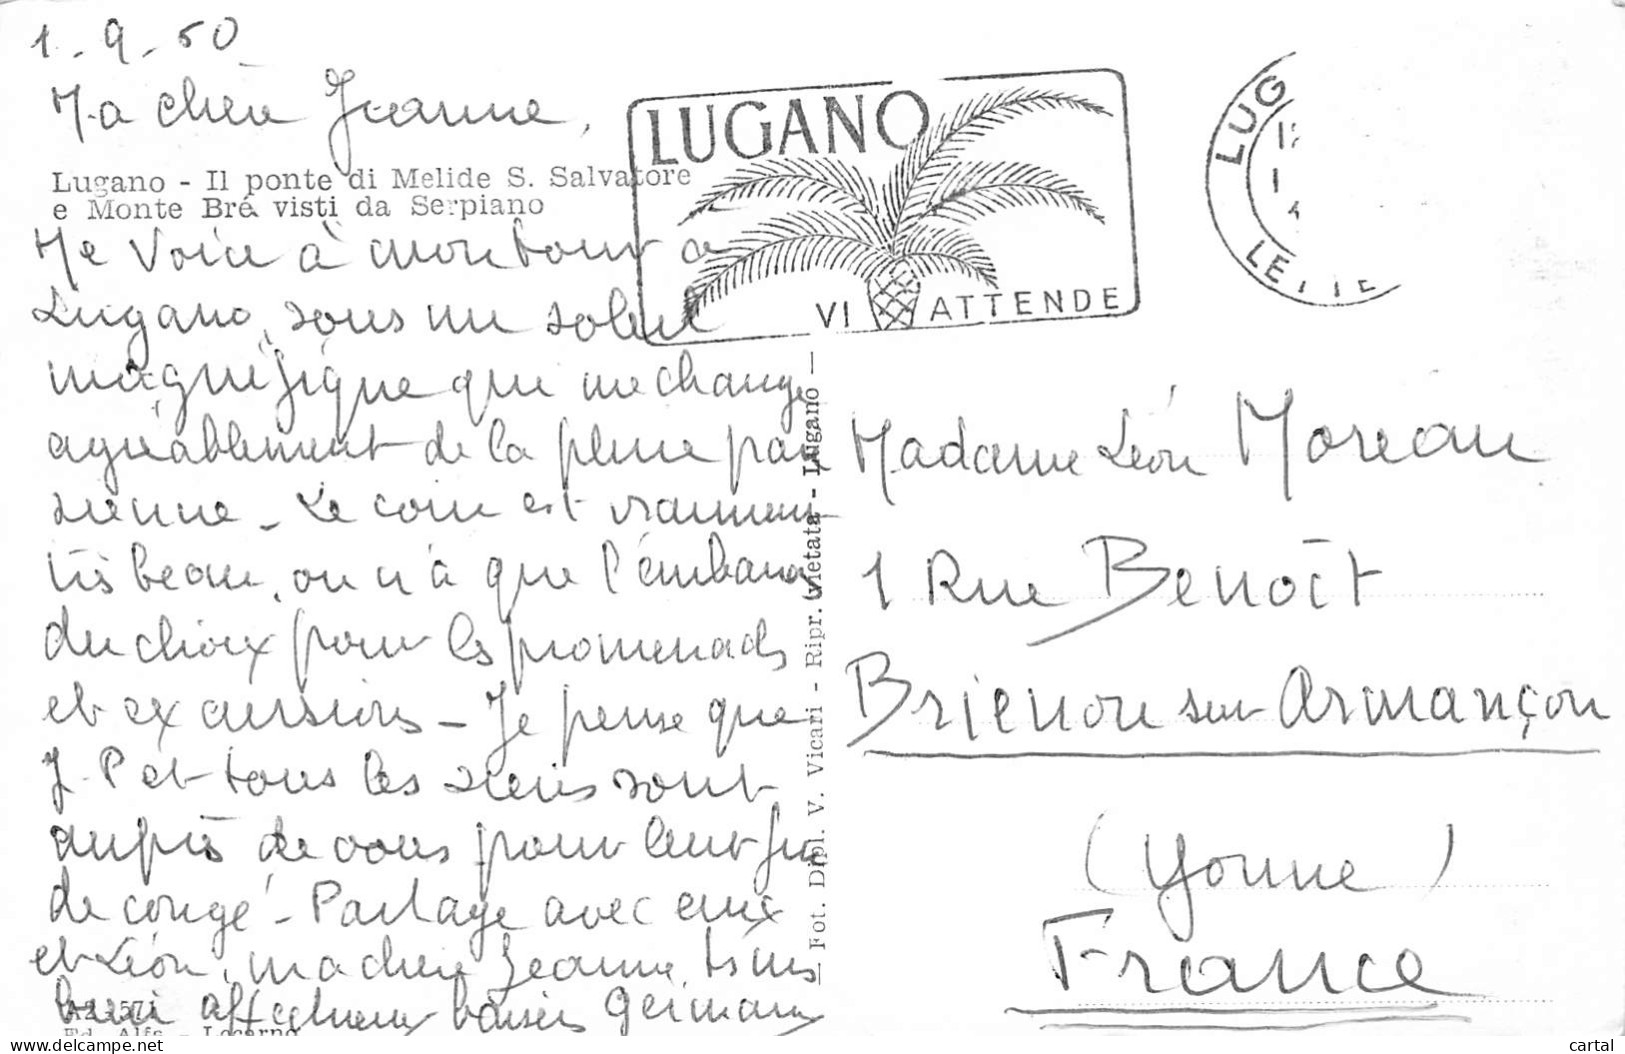 1.9.50
Ma chère Jeanne,
Lugano - Il ponte di Melide S. Salvatore
e Monte Brè visti da Serpiano
Me voici à mon tour à
Lugano, sous un soleil
magnifique qui me change
agréablement de la pluie pari
sienne - Le coin est vraiment
très beau, on n'a que l'embarras
du choix pour les promenades
et excursions - Je pense que
J. P et tous les siens sont
auprès de vous pour leur fin
de congé - Partage avec eux
et Léon, ma chère Jeanne, mes
bien affectueux baisers Germaine
Ed. Alfa - Locarno
Fot. Dipl. V. Vicari - Ripr. vietata - Lugano
LUGANO
VI ATTENDE
LUG
Madame Léon Moreau
1 Rue Benoît
Brienon sur Armançon
(Yonne)
France
delcampe.net
cartal